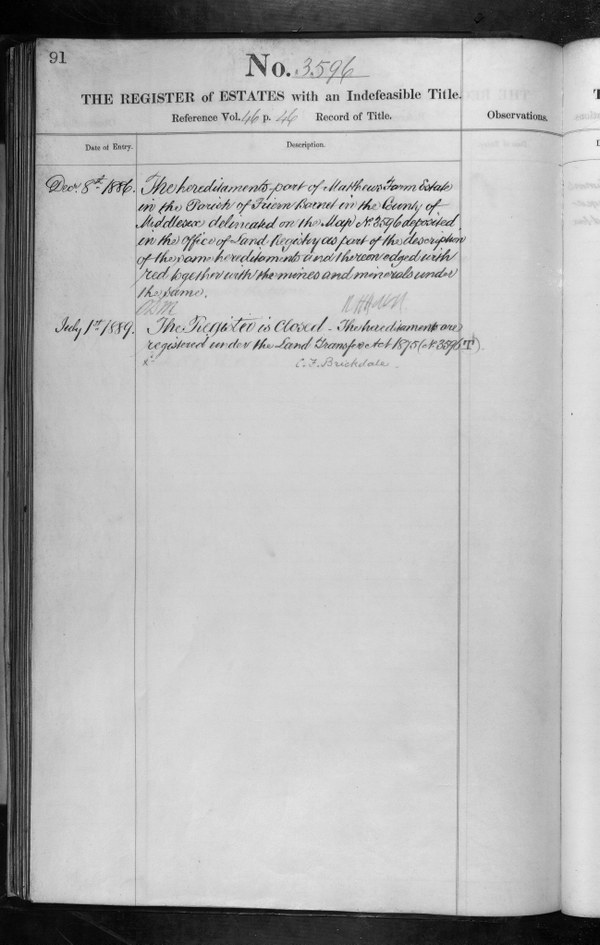 91
No. 3596
THE REGISTER of ESTATES with an Indefeasible Title.
Reference Vol. 46 p. 46 Record of Title.
Observations.
Date of Entry.
Description.
Decr. 8th 1886.
The hereditaments part of Matthews Farm Estate
in the Parish of Friern Barnet in the County of
Middlesex delineated on the Map No. 3596 deposited
in the office of Land Registry as part of the description
of the same hereditaments and thereon edged with
red together with the mines and minerals under
the same.
July 1st 1889.
The Register is closed - The hereditaments are
registered under the Land Transfer Act 1875 (No. 3596T).
C. F. Brickdale